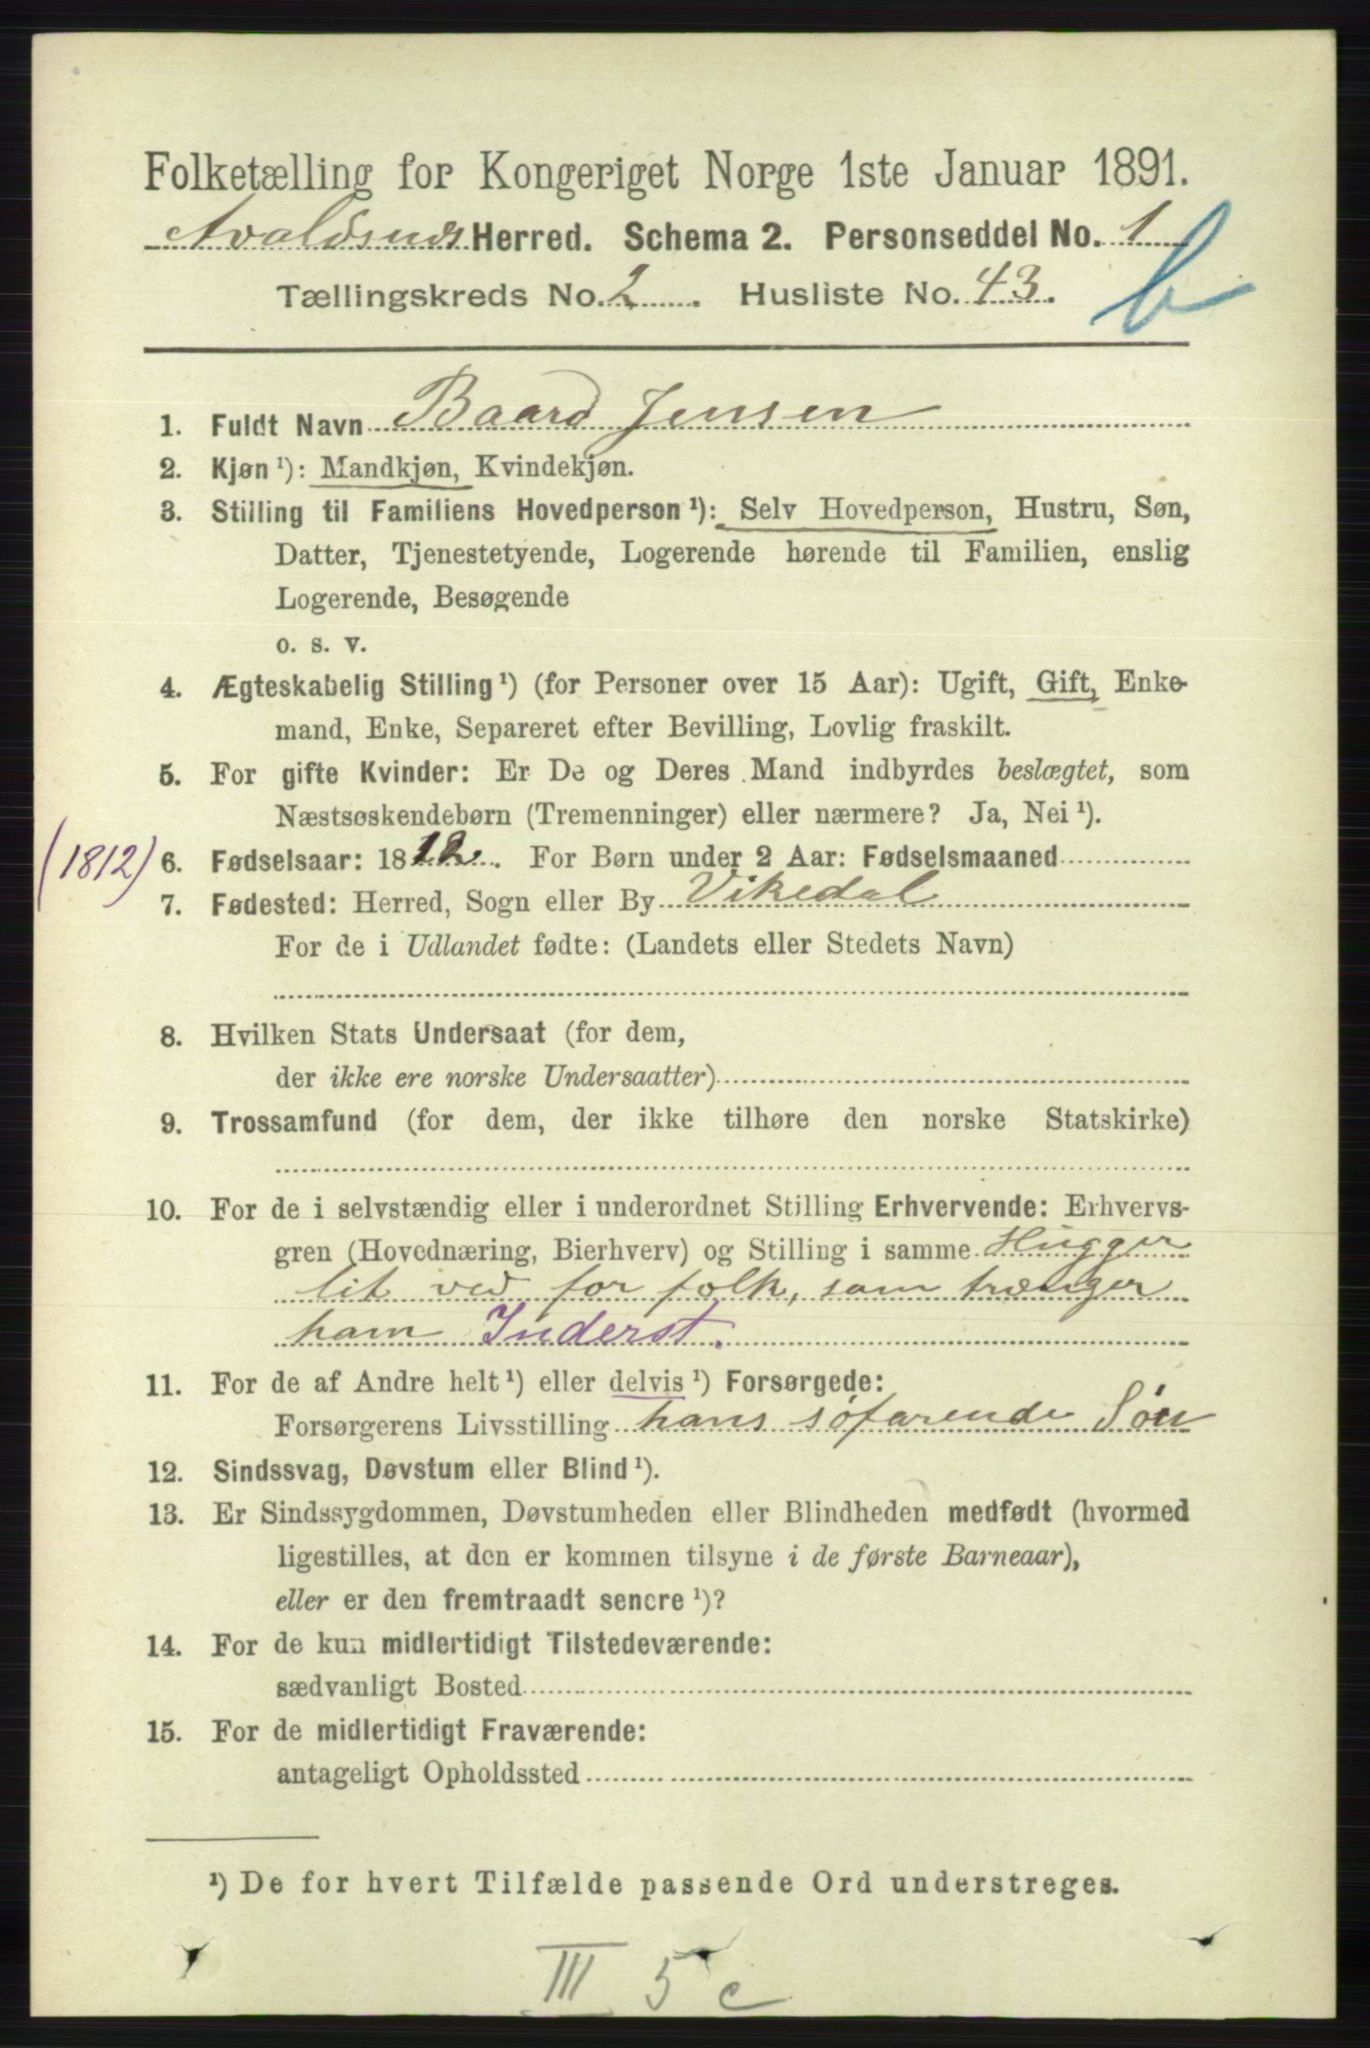 Folketælling for Kongeriget Norge 1ste Januar 1891.
Avaldsnes Herred. Schema 2. Personseddel No. 1
Tællingskreds No. 2. Husliste No. 43.
b
1. Fuldt Navn Baard Jensen
2. Kjøn ¹): Mandkjøn, Kvindekjøn.
3. Stilling til Familiens Hovedperson ¹): Selv Hovedperson, Hustru, Søn,
Datter, Tjenestetyende, Logerende hørende til Familien, enslig
Logerende, Besøgende
o. s. v.
4. Ægteskabelig Stilling ¹) (for Personer over 15 Aar): Ugift, Gift, Enke-
mand, Enke, Separeret efter Bevilling, Lovlig fraskilt.
5. For gifte Kvinder: Er De og Deres Mand indbyrdes beslægtet, som
Næstsøskendebørn (Tremenninger) eller nærmere? Ja, Nei ¹).
(1812) 6. Fødselsaar: 1812. For Børn under 2 Aar: Fødselsmaaned
7. Fødested: Herred, Sogn eller By Vikedal
For de i Udlandet fødte: (Landets eller Stedets Navn)
8. Hvilken Stats Undersaat (for dem,
der ikke ere norske Undersaatter)
9. Trossamfund (for dem, der ikke tilhøre den norske Statskirke)
10. For de i selvstændig eller i underordnet Stilling Erhvervende: Erhvervs-
gren (Hovednæring, Bierhverv) og Stilling i samme Hugger
lit ved for folk, som trænger
ham Inderst.
11. For de af Andre helt ¹) eller delvis ¹) Forsørgede:
Forsørgerens Livsstilling hans søfarende Søn
12. Sindssvag, Døvstum eller Blind ¹).
13. Er Sindssygdommen, Døvstumheden eller Blindheden medfødt (hvormed
ligestilles, at den er kommen tilsyne i de første Barneaar),
eller er den fremtraadt senere ¹)?
14. For de kun midlertidigt Tilstedeværende:
sædvanligt Bosted
15. For de midlertidigt Fraværende:
antageligt Opholdssted
¹) De for hvert Tilfælde passende Ord understreges.
III 5 c